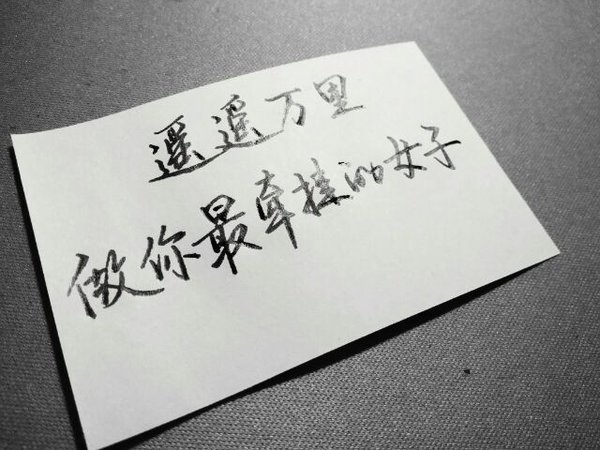 遥遥万里
做你最牵挂的女子